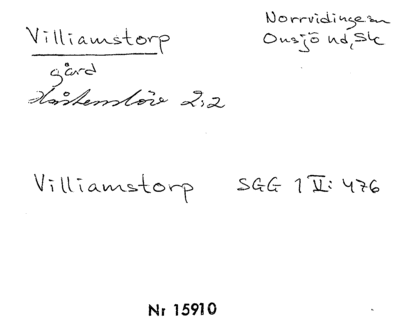 Villiamstorp
Norrvidinge sn
Onsjö hd, Sk
gård
2:2
Villiamstorp SGG 1 II: 476
Nr 15910